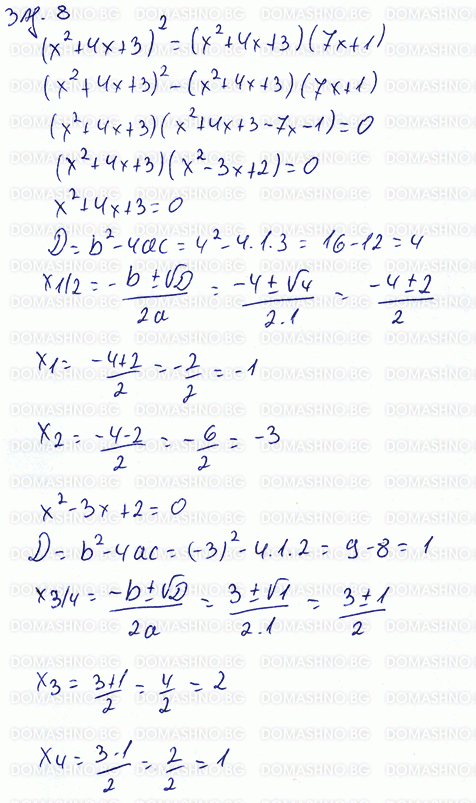 зад. 8
(x²+4x+3)² = (x²+4x+3)(7x+1)
(x²+4x+3)² - (x²+4x+3)(7x+1)
(x²+4x+3)(x²+4x+3-7x-1)=0
(x²+4x+3)(x²-3x+2)=0
x²+4x+3=0
D=b²-4ac=4²-4.1.3=16-12=4
x1/2 = -b±√D/2a = -4±√4/2.1 = -4±2/2
x1= -4+2/2 = -2/2 = -1
x2 = -4-2/2 = -6/2 = -3
x²-3x+2=0
D= b²-4ac=(-3)²-4.1.2=9-8=1
x3/4 = -b±√D/2a = 3±√1/2.1 = 3±1/2
x3 = 3+1/2 = 4/2 = 2
x4 = 3-1/2 = 2/2 = 1
DOMASHNO.BG